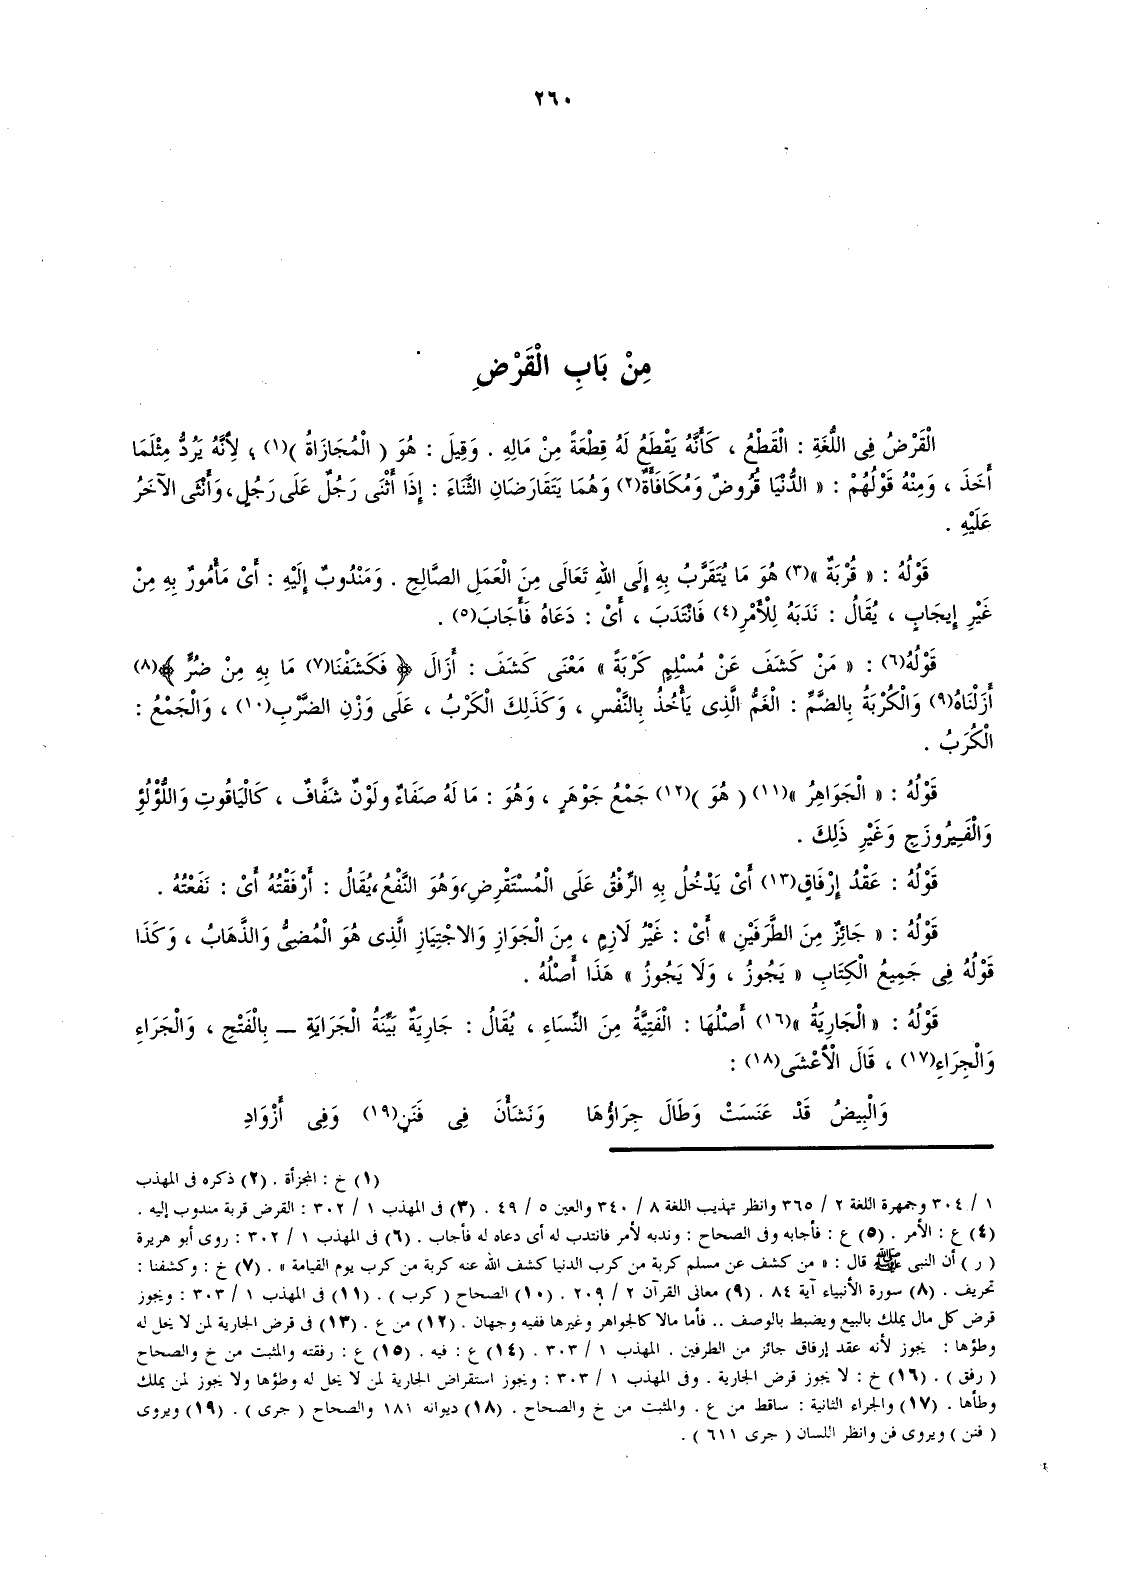 ٢٦٠
مِنْ بَابِ الْقَرْضِ
الْقَرْضُ فِى اللُّغَةِ : الْقَطْعُ ، كَأَنَّهُ يَقْطَعُ لَهُ قِطْعَةً مِنْ مَالِهِ . وَقِيلَ : هُوَ ( الْمُجَازَاةُ )(١) ؛ لِأَنَّهُ يَرُدُّ مِثْلَمَا
أَخَذَ ، وَمِنْهُ قَوْلُهُمْ : « الدُّنْيَا قُرُوضٌ وَمُكَافَأَةٌ(٢) وَهُمَا يَتَقَارَضَانِ الثَّنَاءَ : إِذَا أَثْنَى رَجُلٌ عَلَى رَجُلٍ، وَأَثْنَى الآخَرُ
عَلَيْهِ .
قَوْلُهُ : « قُرْبَةٌ »(٣) هُوَ مَا يُتَقَرَّبُ بِهِ إِلَى اللهِ تَعَالَى مِنَ الْعَمَلِ الصَّالِحِ . وَمَنْدُوبٌ إِلَيْهِ : أَىْ مَأْمُورٌ بِهِ مِنْ
غَيْرِ إِيجَابٍ ، يُقَالُ : نَدَبَهُ لِلْأَمْرِ(٤) فَانْتَدَبَ ، أَىْ : دَعَاهُ فَأَجَابَ(٥) .
قَوْلُهُ(٦) : « مَنْ كَشَفَ عَنْ مُسْلِمٍ كَرْبَةً » مَعْنَى كَشَفَ : أَزَالَ ﴿ فَكَشَفْنَا(٧) مَا بِهِ مِنْ ضُرٍّ ﴾(٨)
أَزَلْنَاهُ(٩) وَالْكُرْبَةُ بِالضَّمِّ : الْغَمُّ الَّذِى يَأْخُذُ بِالنَّفْسِ ، وَكَذَلِكَ الْكَرْبُ ، عَلَى وَزْنِ الضَّرْبِ(١٠) ، وَالْجَمْعُ :
الْكُرَبُ .
قَوْلُهُ : « الْجَوَاهِرُ »(١١) ( هُوَ )(١٢) جَمْعُ جَوْهَرٍ ، وَهُوَ : مَا لَهُ صَفَاءٌ وَلَوْنٌ شَفَّافٌ ، كَالْيَاقُوتِ وَاللُّؤْلُؤِ
وَالْفَيْرُوزَجِ وَغَيْرِ ذَلِكَ .
قَوْلُهُ : عَقْدُ إِرْفَاقٍ(١٣) أَىْ يَدْخُلُ بِهِ الرِّفْقُ عَلَى الْمُسْتَقْرِضِ، وَهُوَ النَّفْعُ، يُقَالُ : أَرْفَقْتُهُ أَىْ : نَفَعْتُهُ .
قَوْلُهُ : « جَائِزٌ مِنَ الطَّرَفَيْنِ » أَىْ : غَيْرُ لَازِمٍ ، مِنَ الْجَوَازِ وَالاجْتِيَازِ الَّذِى هُوَ الْمُضِىُّ وَالذَّهَابُ ، وَكَذَا
قَوْلُهُ فِى جَمِيعُ الْكِتَابِ « يَجُوزُ ، وَلَا يَجُوزُ » هَذَا أَصْلُهُ .
قَوْلُهُ : « الْجَارِيَةُ »(١٦) أَصْلُهَا : الْفَتِيَّةُ مِنَ النِّسَاءِ ، يُقَالُ : جَارِيَةٌ بَيِّنَةُ الْجَرَايَةِ ــ بِالْفَتْحِ ، وَالْجَرَاءِ
وَالْجِرَاءِ(١٧) ، قَالَ الْأَعْشَى(١٨) :
وَالْبِيضُ قَدْ عَنَسَتْ وَطَالَ جِرَاؤُهَا وَنَشَأْنَ فِى فَنَنٍ(١٩) وَفِى أَزْوَادِ
(١) خ : المجزأة . (٢) ذكره فى المهذب
١ / ٣٠٤ وجمهرة اللغة ٢ / ٣٦٥ وانظر تهذيب اللغة ٨ / ٣٤٠ والعين ٥ / ٤٩ . (٣) فى المهذب ١ / ٣٠٢ : القرض قربة مندوب إليه .
(٤) ع : الأمر . (٥) ع : فأجابه وفى الصحاح : وندبه لأمر فانتدب له أى دعاه له فأجاب . (٦) فى المهذب ١ / ٣٠٢ : روى أبو هريرة
( ر ) أن النبى ﷺ قال : « من كشف عن مسلم كربة من كرب الدنيا كشف الله عنه كربة من كرب يوم القيامة » . (٧) خ : وكشفنا :
تحريف . (٨) سورة الأنبياء آية ٨٤ . (٩) معانى القرآن ٢ / ٢٠٩ . (١٠) الصحاح ( كرب ) . (١١) فى المهذب ١ / ٣٠٣ : ويجوز
قرض كل مال يملك بالبيع ويضبط بالوصف .. فأما مالا كالجواهر وغيرها ففيه وجهان . (١٢) من ع . (١٣) فى قرض الجارية لمن لا يحل له
وطؤها : يجوز لأنه عقد إرفاق جائز من الطرفين . المهذب ١ / ٣٠٣ . (١٤) ع : فيه . (١٥) ع : رفقته والمثبت من خ والصحاح
( رفق ) . (١٦) خ : لا يجوز قرض الجارية . وفى المهذب ١ / ٣٠٣ : ويجوز استقراض الجارية لمن لا يحل له وطؤها ولا يجوز لمن يملك
وطأها . (١٧) والجراء الثانية : ساقط من ع . والمثبت من خ والصحاح . (١٨) ديوانه ١٨١ والصحاح ( جرى ) . (١٩) ويروى
( فنن ) ويروى فن وانظر اللسان ( جرى ٦١١ ) .